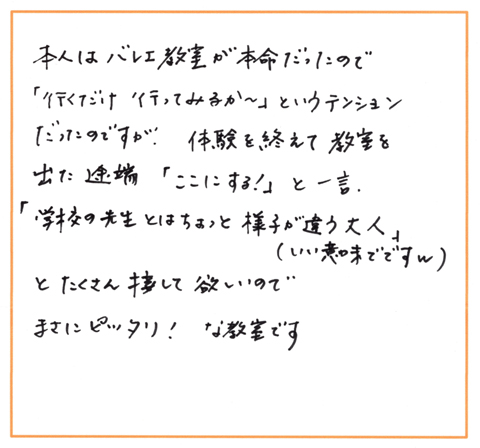 本人はバレエ教室が本命だったので
「行くだけ 行ってみるか〜」というテンション
だったのですが、体験を終えて教室を
出た途端「ここにする!」と一言。
「学校の先生とはちょっと様子が違う大人」
(いい意味でですw)
とたくさん接して欲しいので
まさにピッタリ! な教室です